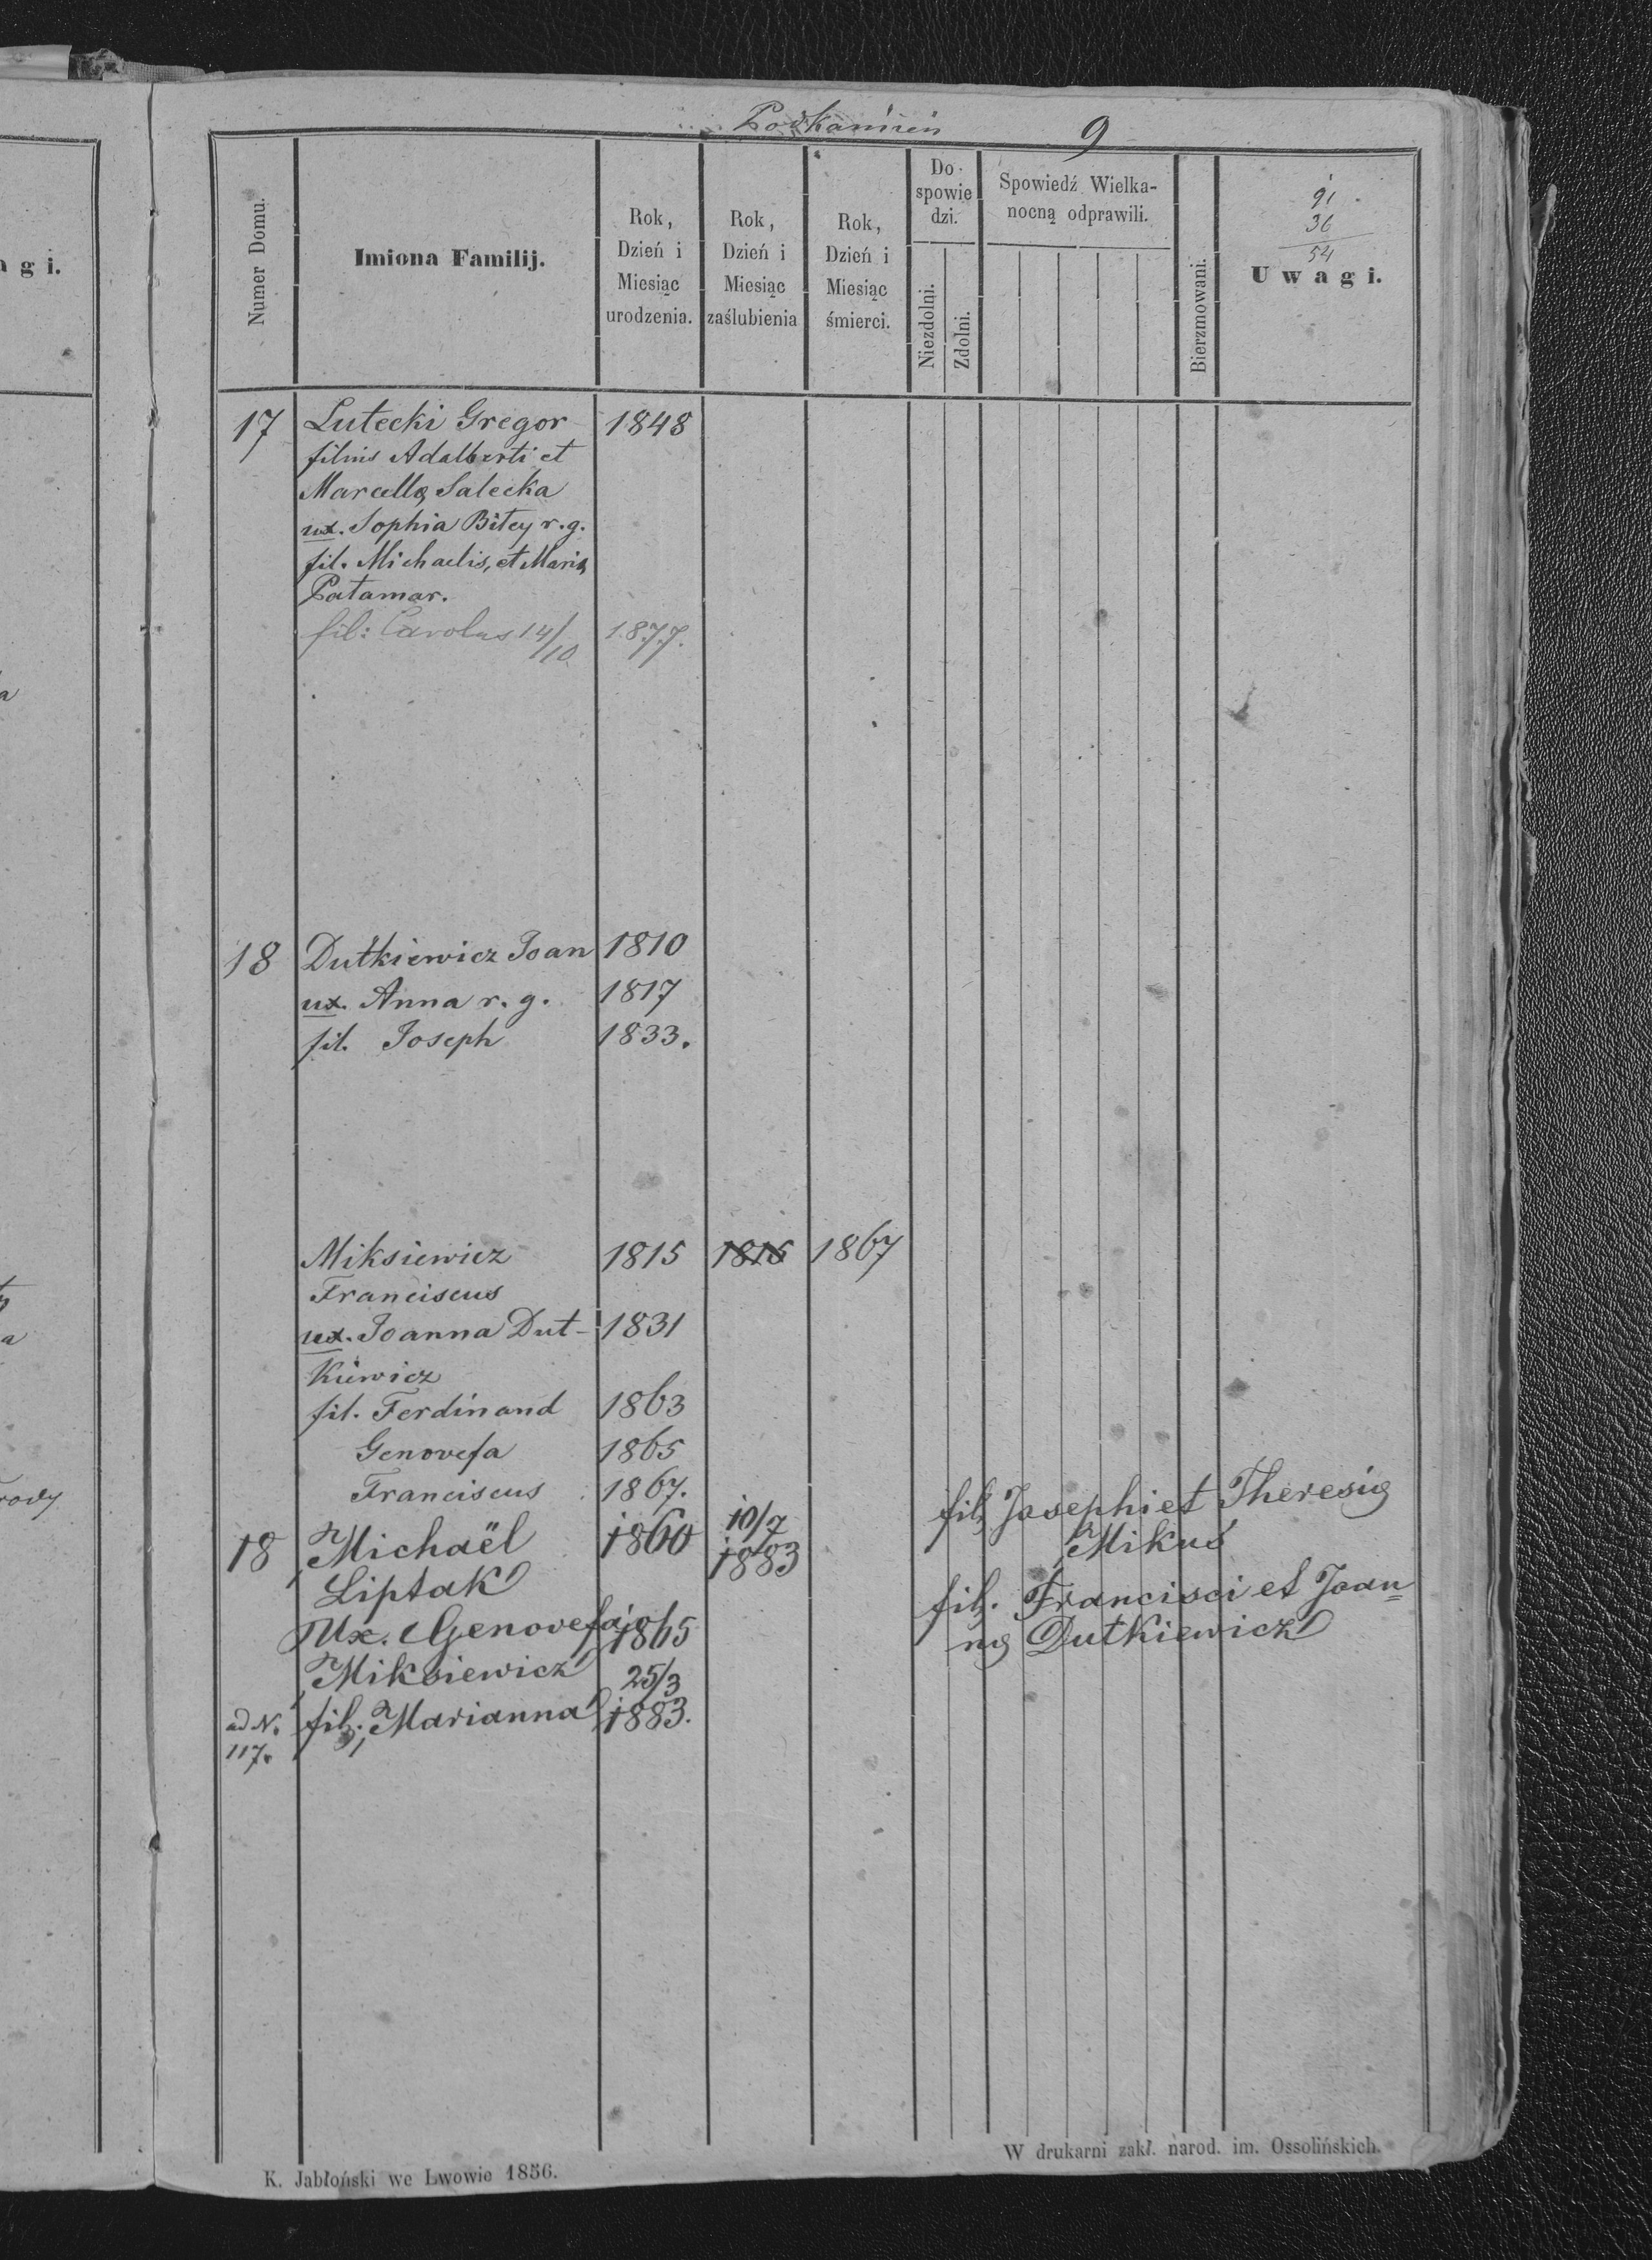 Podkamień 9
Numer Domu.
Imiona Familij.
Rok,
Dzień i
Miesiąc
urodzenia.
Rok,
Dzień i
Miesiąc
zaślubienia
Rok,
Dzień i
Miesiąc
śmierci.
Do
spowie
dzi.
Niezdolni.
Zdolni.
Spowiedź Wielka-
nocną odprawili.
Bierzmowani.
91
36
54
Uwagi.
agi.
17 Lutecki Gregor 1848
filius Adalberti et
Marcellæ Salecka
ux. Sophia Bitey r. g.
fil. Michaelis, et Mariæ
Patamar.
fil: Carolus 14/10 1877.
18 Dutkiewicz Joan 1810
ux. Anna r. g. 1817
fil. Joseph 1833.
Miksiewicz 1815 1815 1867
Franciscus
ux. Joanna Dut- 1831
kiewicz
fil. Ferdinand 1863
Genovefa 1865
Franciscus 1867.
18 Michaël 1860 10/7 1883 fil. Josephi et Theresiæ
Liptak Mikuś
Ux. Genovefa 1865 fil. Francisci et Joan=
Miksiewicz næ Dutkiewicz
25/3
ad N. fil. Marianna 1883.
117.
K. Jabłoński we Lwowie 1856.
W drukarni zakł. narod. im. Ossolińskich.